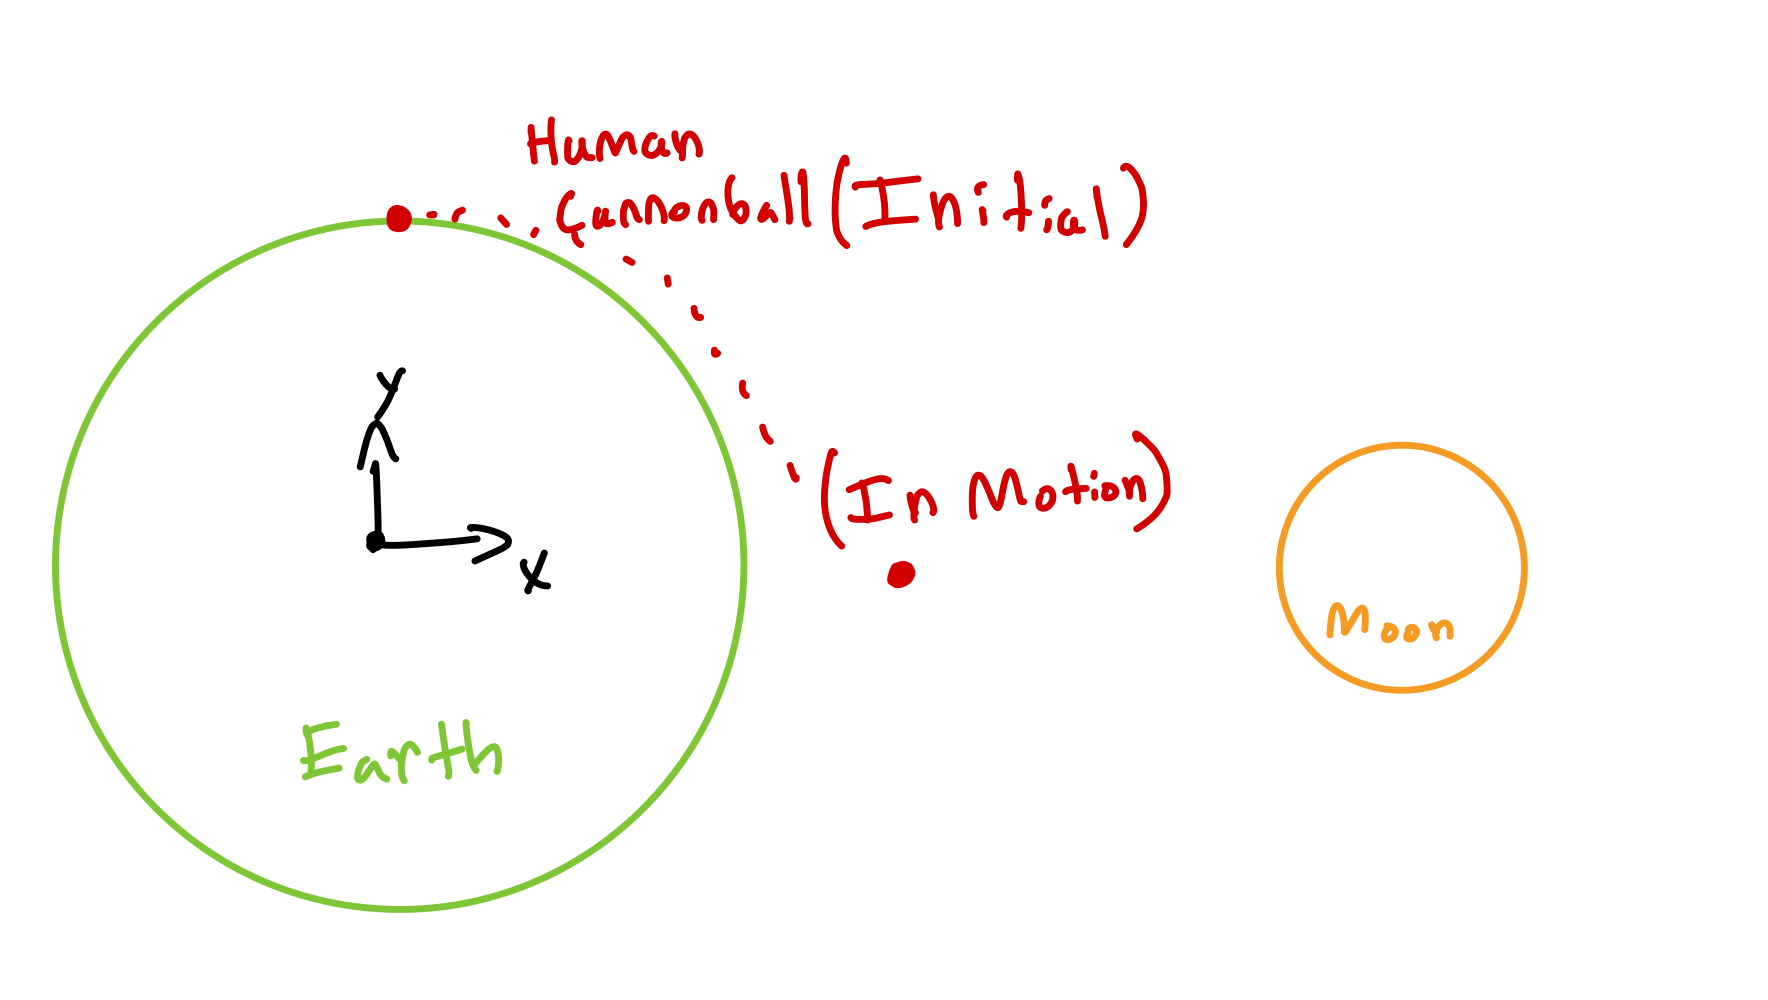 Human
Cannonball (Initial)
y
(In Motion)
x
Moon
Earth